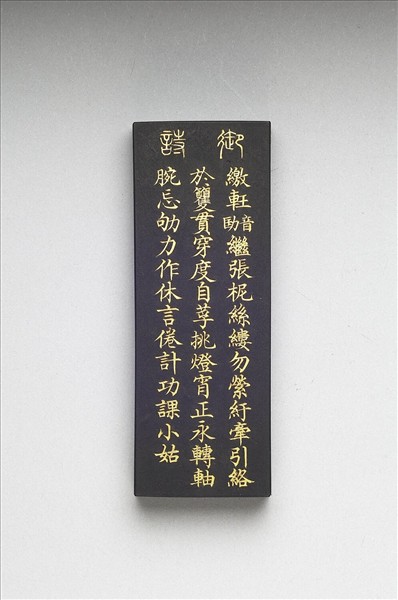 御詩
繳軖音劻繼張柅絲縷勿縈紆牽引絡
於籰貫穿度自莩挑燈宵正永轉軸
腕忘劬力作休言倦計功課小姑